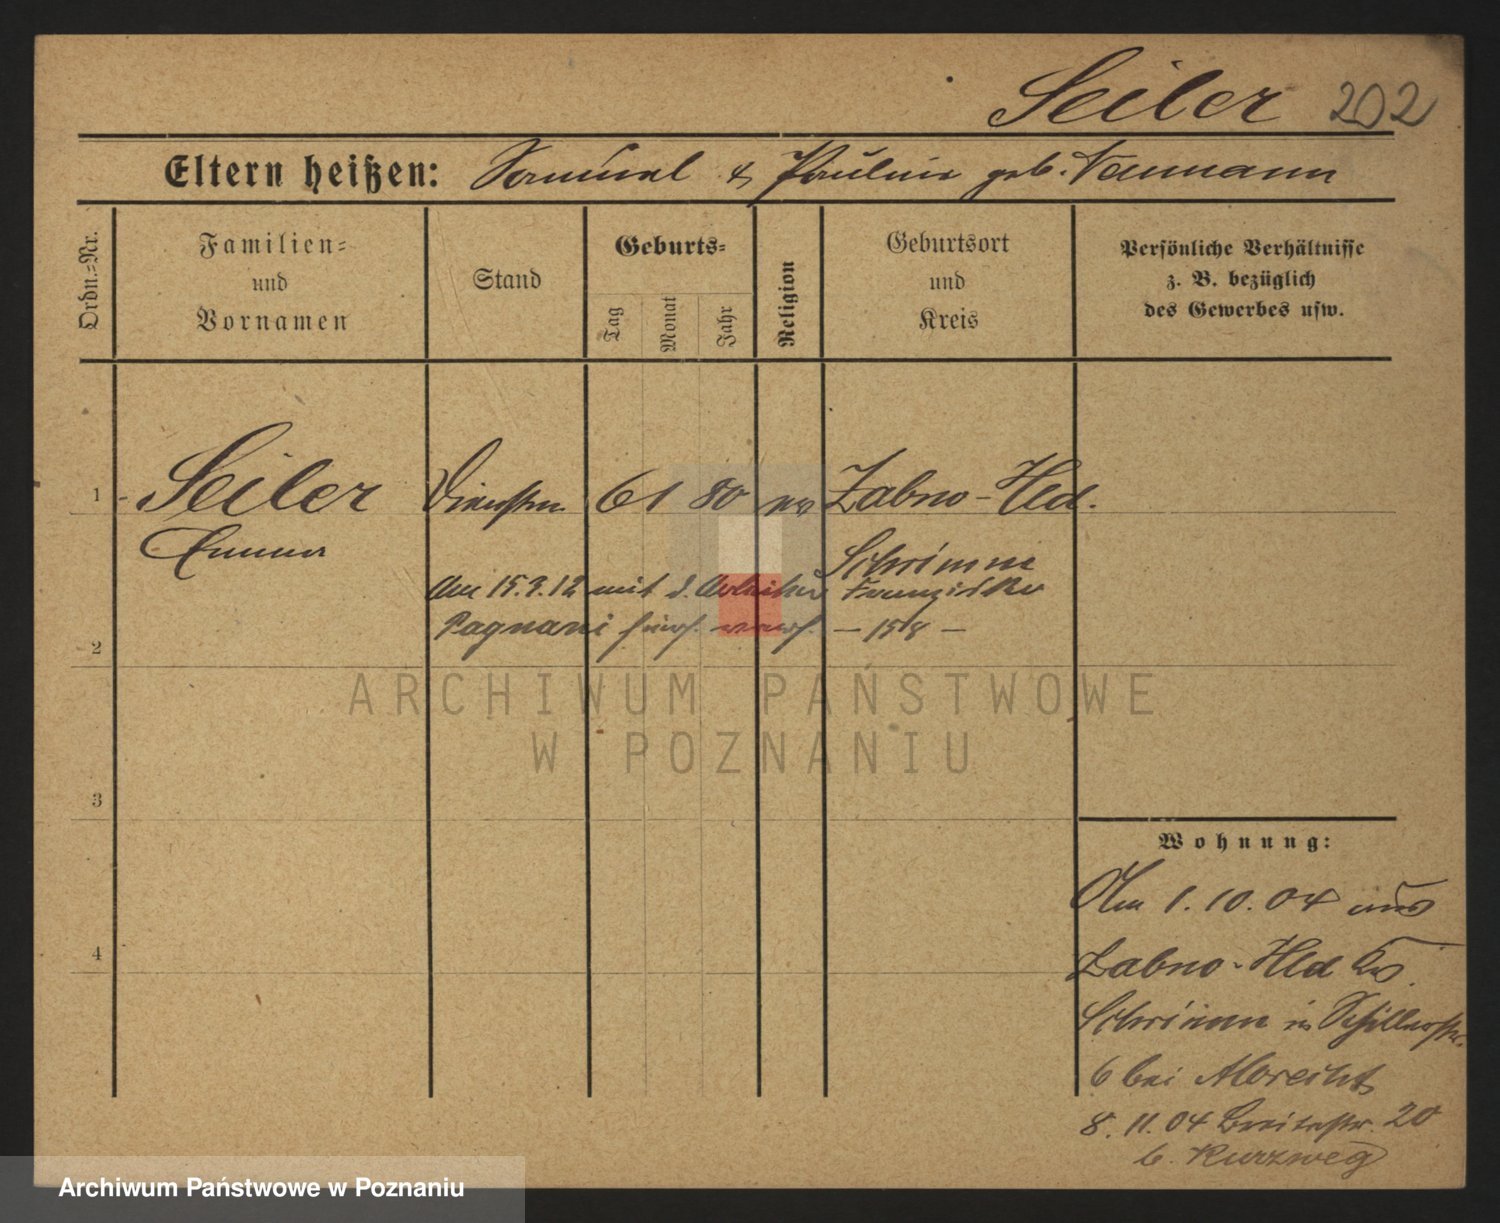 Seiler 202
Eltern heißen: Samuel & Pauline geb. Neumann
Ordn.=Nr.
Familien=
und
Vornamen
Stand
Geburts=
Tag
Monat
Jahr
Religion
Geburtsort
und
Kreis
Persönliche Verhältnisse
z. B. bezüglich
des Gewerbes usw.
1 Seiler 6 1 80 ev Zabno-Hld.
Emma Schrimm
Am 15.3.12 mit d. Arbeiter Franziskus
Pagnani — 158 —
2
ARCHIWUM PAŃSTWOWE
W POZNANIU
3
Wohnung:
Am 1.10.04 aus
4 Zabno-Hld Krs.
Schrimm in Schillerstr.
6 bei Albrecht
8.11.04 Breitestr. 20
b. Kurzweg
Archiwum Państwowe w Poznaniu